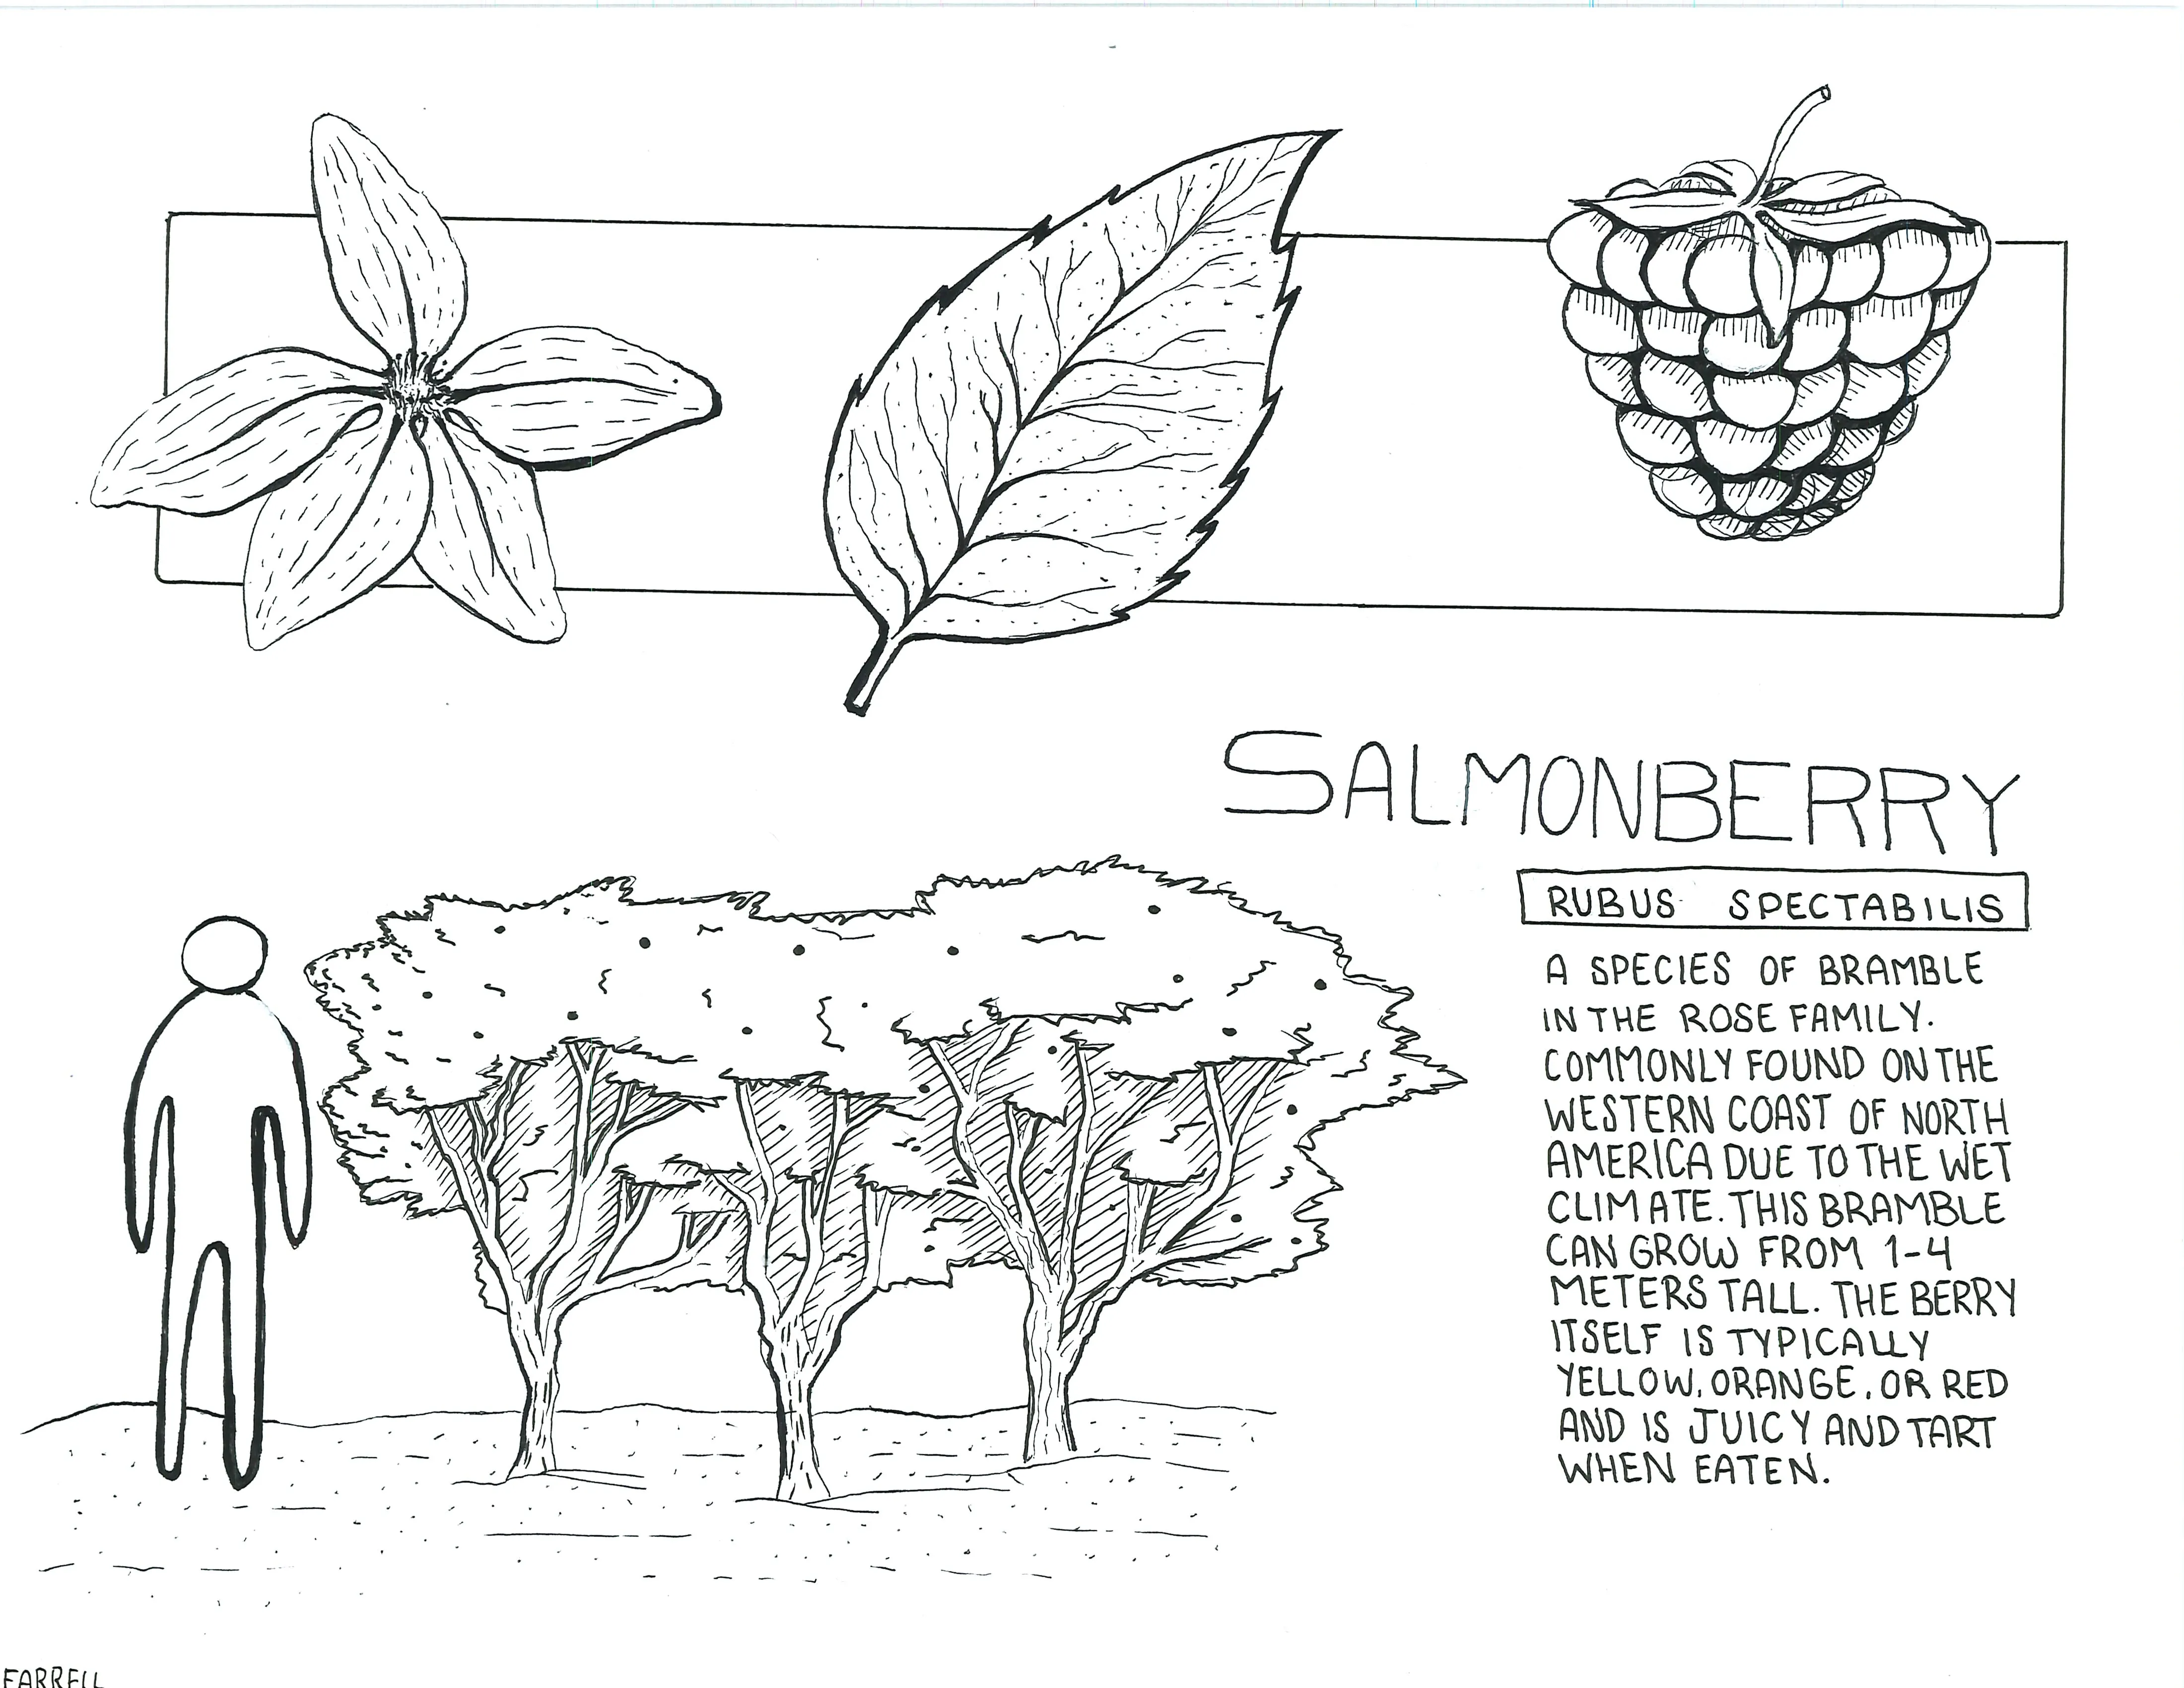 SALMONBERRY
RUBUS SPECTABILIS
A SPECIES OF BRAMBLE
IN THE ROSE FAMILY.
COMMONLY FOUND ON THE
WESTERN COAST OF NORTH
AMERICA DUE TO THE WET
CLIMATE. THIS BRAMBLE
CAN GROW FROM 1-4
METERS TALL. THE BERRY
ITSELF IS TYPICALLY
YELLOW, ORANGE, OR RED
AND IS JUICY AND TART
WHEN EATEN.
FARRELL